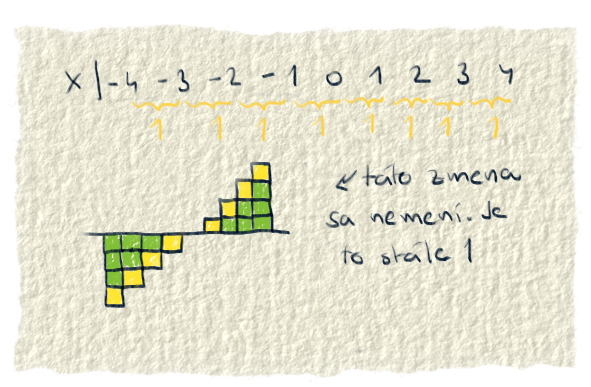 x | -4 -3 -2 -1 0 1 2 3 4
1 1 1 1 1 1 1 1
táto zmena
sa nemení. Je
to stále 1